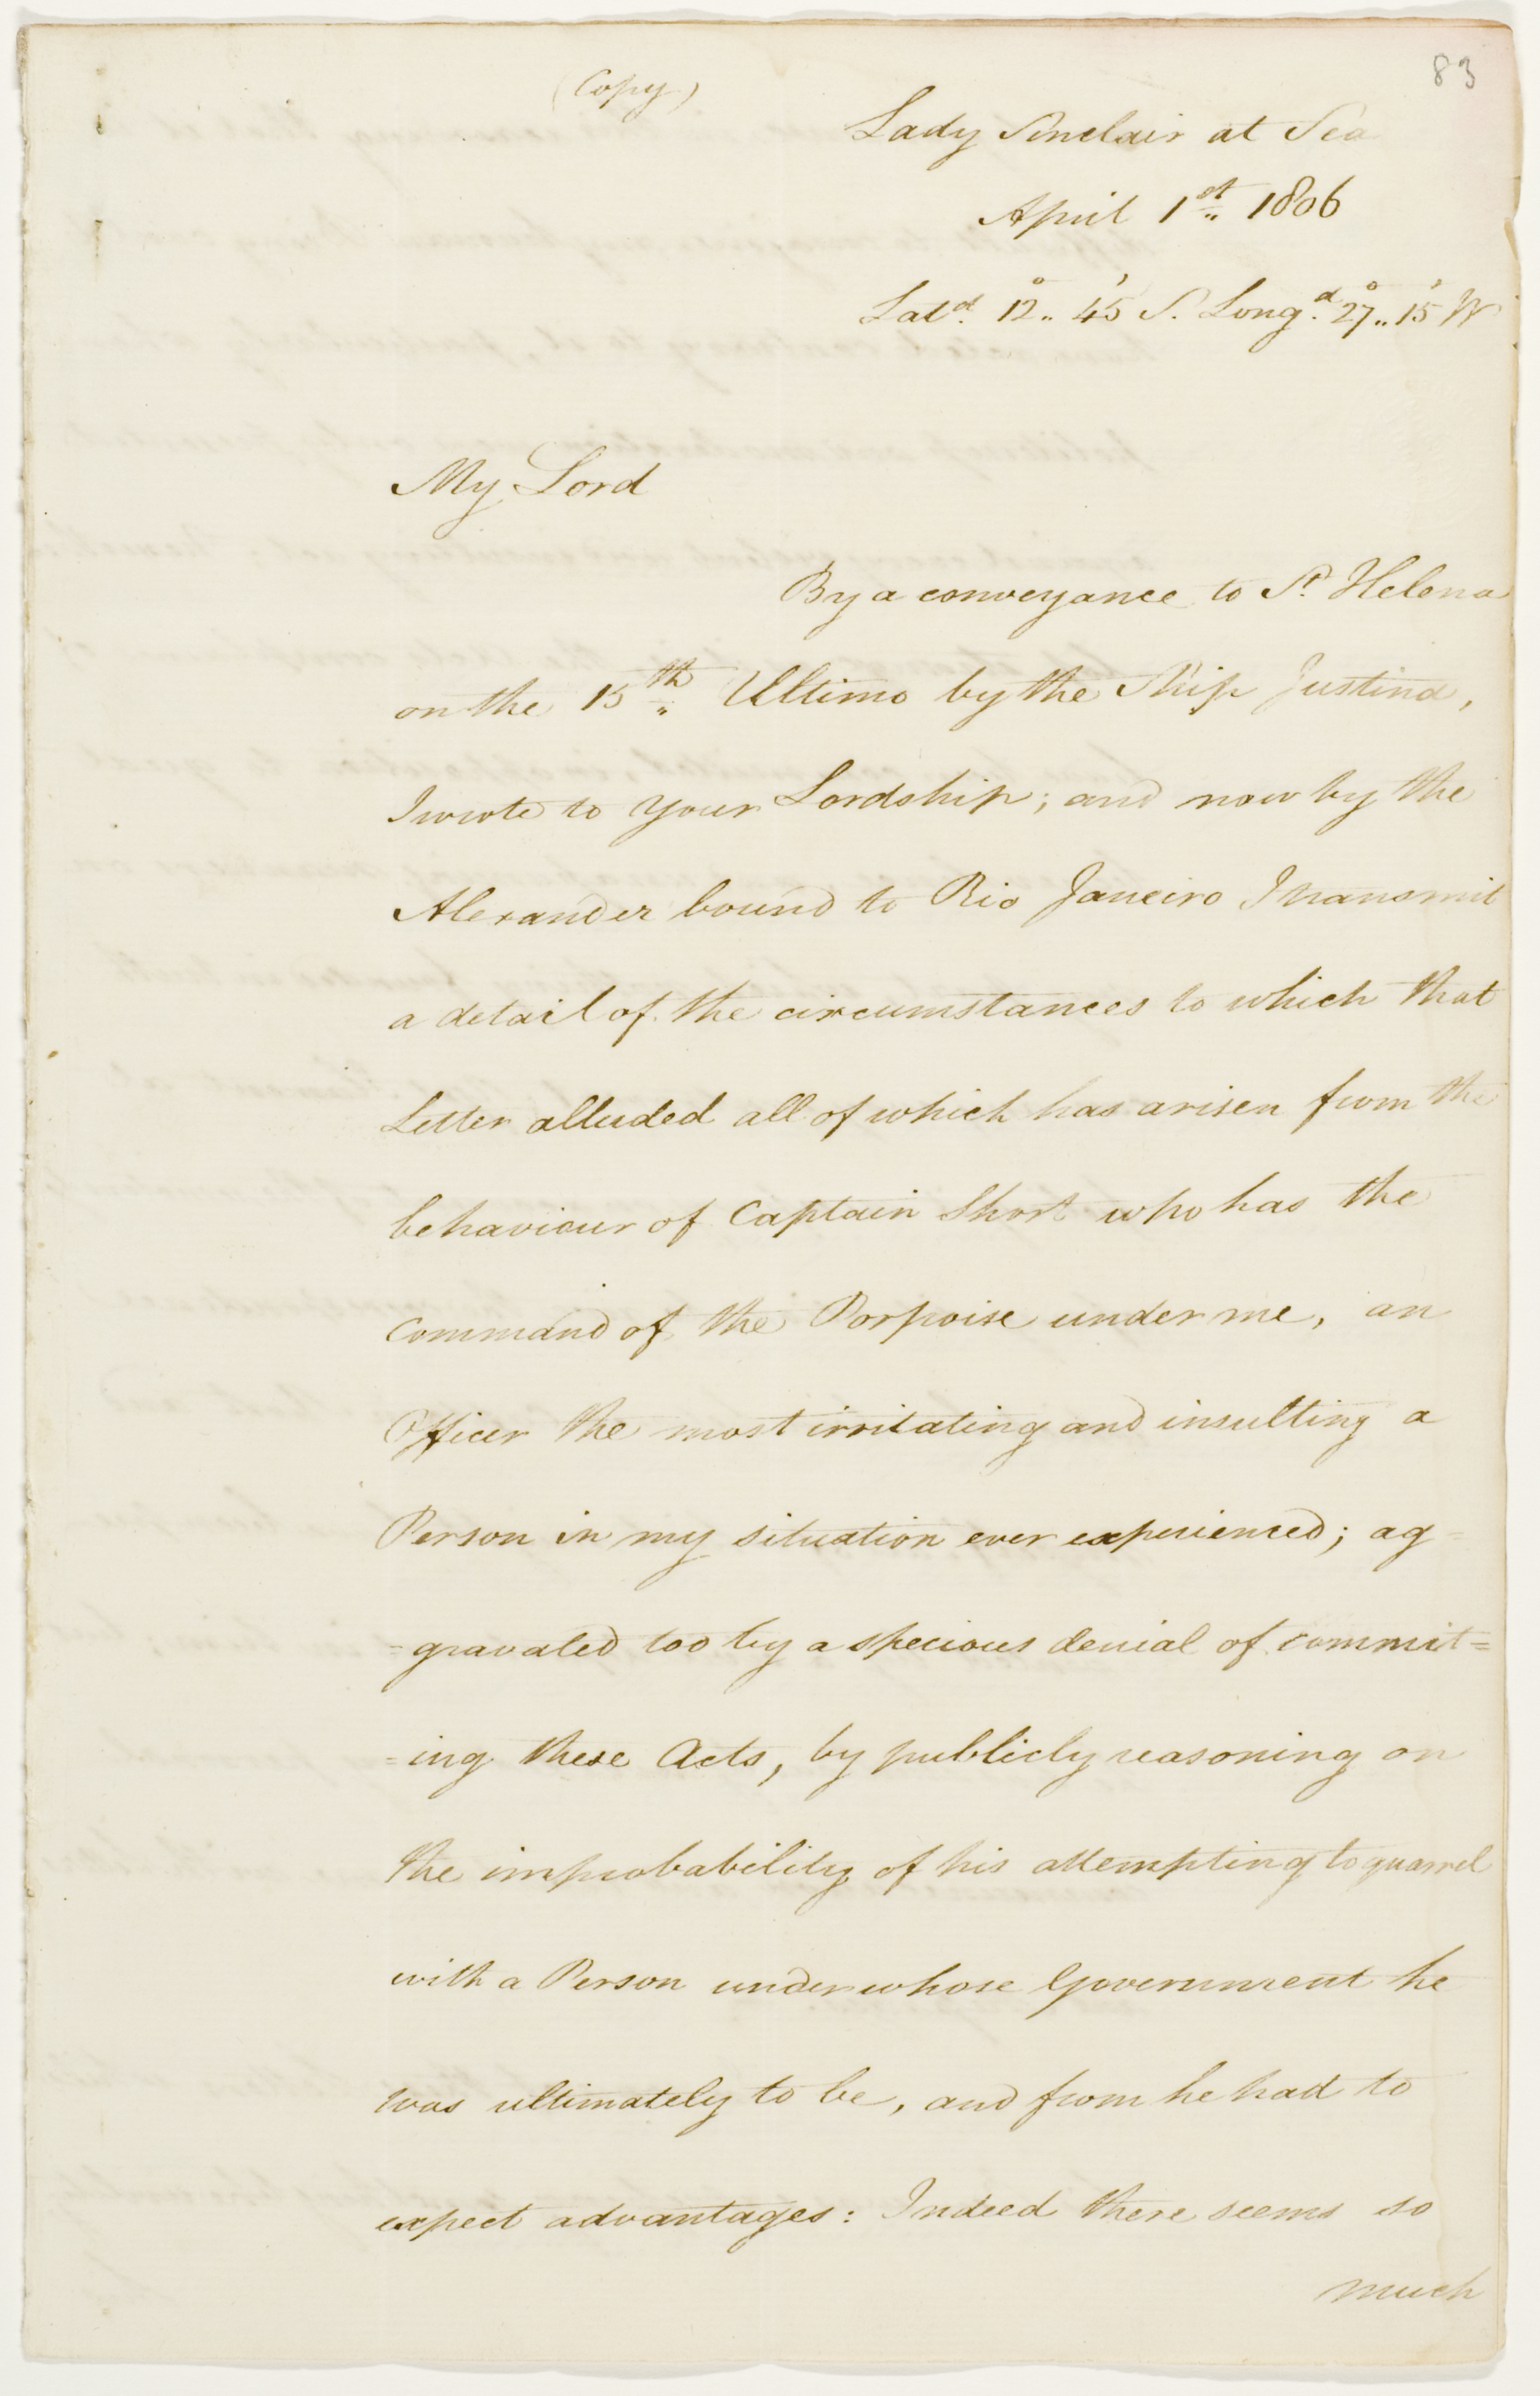 83
(Copy)
Lady Sinclair at Sea
April 1st 1806
Latd. 12° 45' S. Longd. 27° 15' W
My Lord
By a conveyance to St. Helena
on the 15th Ultimo by the Ship Justina,
I wrote to your Lordship; and now by the
Alexander bound to Rio Janeiro I transmit
a detail of the circumstances to which that
Letter alluded all of which has arisen from the
behaviour of Captain Short who has the
command of the Porpoise under me, an
Officer the most irritating and insulting a
Person in my situation ever experienced; ag=
=gravated too by a specious denial of commit=
=ing these Acts, by publicly reasoning on
the improbability of his attempting to quarrel
with a Person under whose Government he
was ultimately to be, and from he had to
expect advantages: Indeed there seems so
much